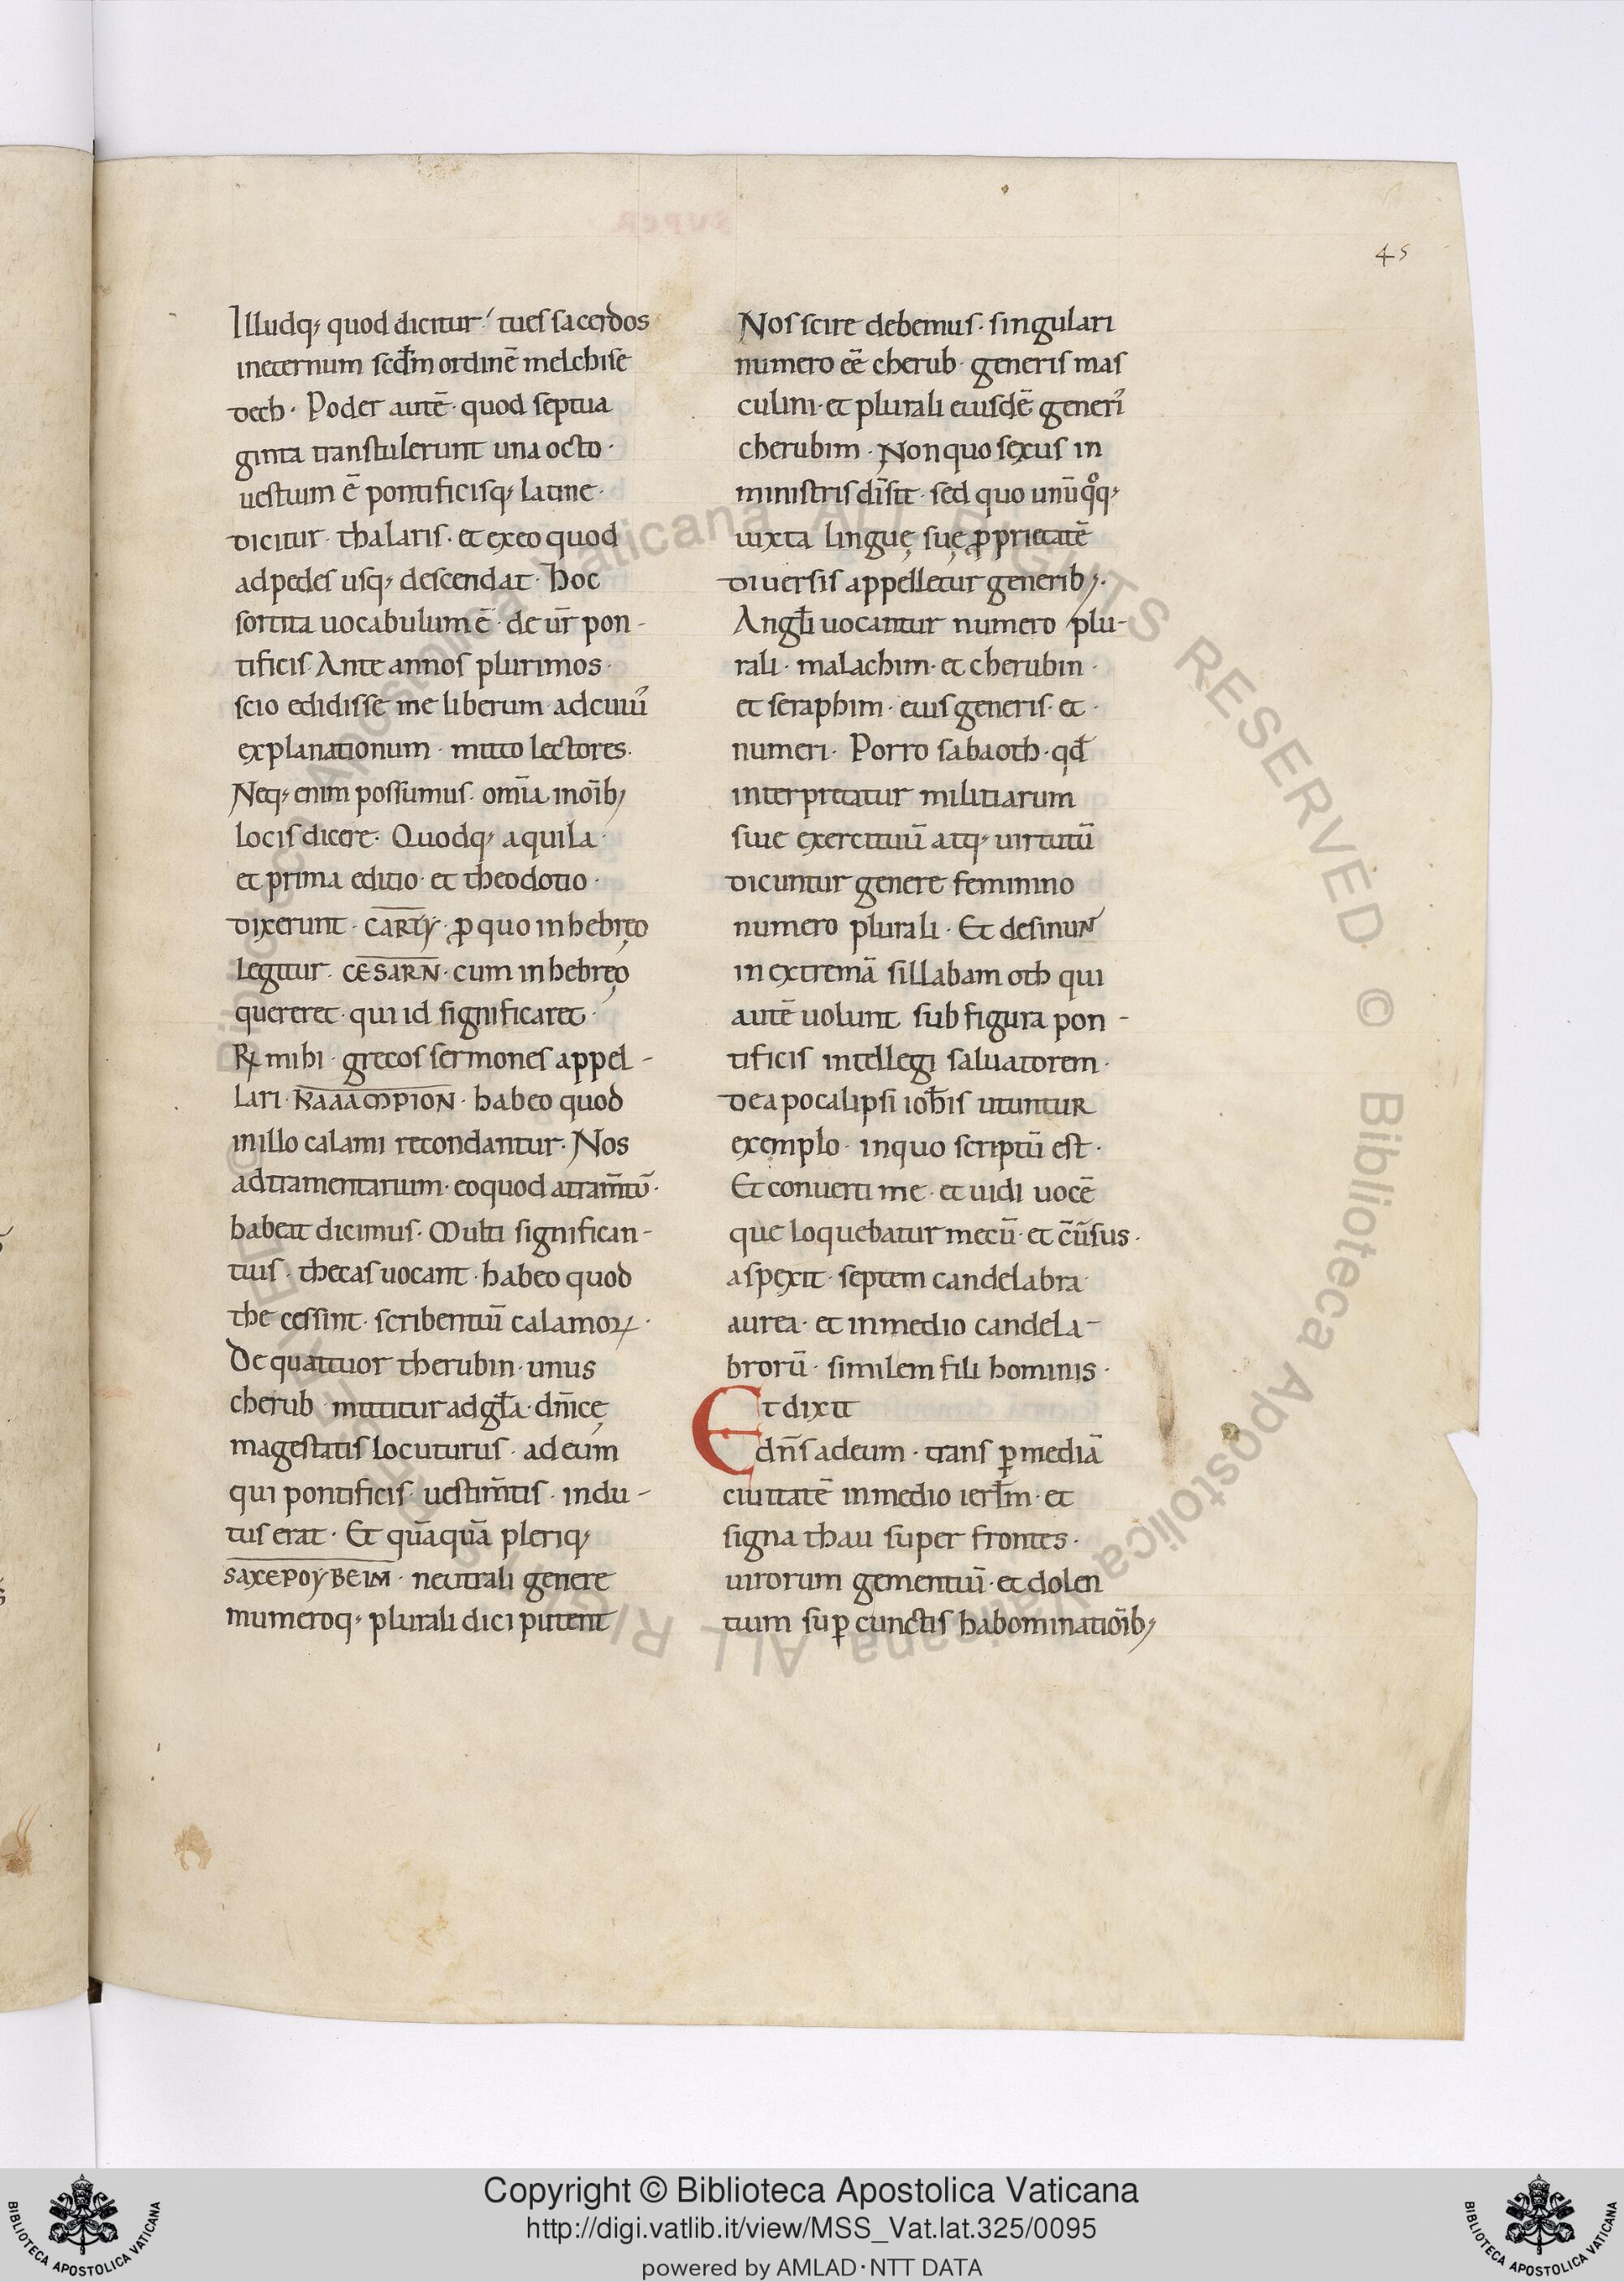 45
Illudq; quod dicitur· tu es sacerdos
in eternum scd̄m ordinē melchise
dech· Poder autē· quod septua
ginta transtulerunt una octo·
uestium ē pontificisq; latine·
dicitur· thalaris· et ex eo quod
ad pedes usq; descendat· Hoc
sortita uocabulum ē· de ur̄ pon-
tificis· Ante annos plurimos·
scio edidisse me liberum ad cuiuſ
explanationum· mitto lectores·
Neq; enim possumus· omīa in oīb;
locis dicere· Quodq; aquila·
et prima editio· et theodotio·
dixerunt· CARTY· ꝓ quo in hebręo
legitur· CESARN· cum in hebręo
quereret· qui id significaret·
R̷ mihi· grecos sermones appel-
lari· habeo quod
in illo calami recondantur· Nos
adtramentarium· eo quod atram̄tū·
habeat dicimus· Multi significan-
tius· thecas uocant· habeo quod
the cessint· scribentiū calamoꝝ·
De quattuor therubin· unus
cherub mittitur ad gl̄a· dn̄icę
magestatis locuturus· ad eum
qui pontificis uestim̄tis· indu-
tus erat· Et quāquā pleriq;
SAXEPOYBEIM· neutrali genere
numeroq; plurali dici putent
Nos scire debemus· singulari
numero eē cherub· generis mas
culini· et plurali eiusdē generiſ
cherubim· Non quo sexus in
ministris dī sit· sed quo unūqͦq;
iuxta linguę suę ꝓprietatē
diuersis appelletur generib;·
Angl̄i uocantur numero plu-
rali· malachim· et cherubin·
et seraphim· eius generis· et·
numeri· Porro sabaoth· qđ
interpretatur militiarum
siue exercituū atq; uirtutū
dicuntur genere feminino
numero plurali· Et desinuɴt
in extremā sillabam oth qui
autē uolunt sub figura pon-
tificis intellegi saluatorem·
de apocalipsi ioh̄is utuntur
exemplo· in quo scriptū est·
Et conuerti me· et uidi uocē
que loquebatur mecū· et cūsus·
aspexit· septem candelabra
aurea· et in medio candela-
brorū· similem fili hominis·
Et dixit
dn̄s ad eum· trans ꝑ mediā
ciuitatē in medio ierl̄m· et
signa thau super frontes·
uirorum gementiū· et dolen
tium suꝑ cunctis habominatiōib;
Copyright © Biblioteca Apostolica Vaticana
http://digi.vatlib.it/view/MSS_Vat.lat.325/0095
powered by AMLAD·NTT DATA